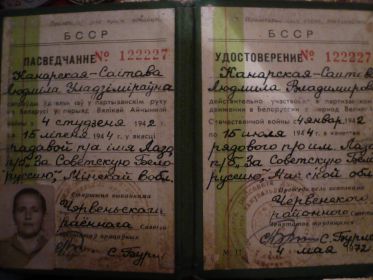 БССР
ПАСВЕДЧАННЕ № 122227
Канарская-Саітава
Людміла Уладзіміраўна
сапраўды удзельнічала ў партызанскім руху
ў Беларусі ў перыяд Вялікай Айчыннай
вайны з 4 студзеня 1942
па 15 ліпеня 1944 г. у якасці
радавой п/а імя Лазо
п/б. "За Советскую Бело-
руссию", Мінскай вобл.
Старшыня выканкома
Червеньского
раённага Савета
С.
БССР
УДОСТОВЕРЕНИЕ № 122227
Канарская-Саитова
Людмила Владимировна
действительно участвовала в партизанском
движении в Белоруссии в период Великой
Отечественной войны с 4 янв. 1942
по 15 июля 1944 г. в качестве
рядового п/о им. Лазо
п/б. "За Советскую Бело-
руссию", Минской обл.
Председатель исполкома
Червенского
районного Совета
С.
4 мая 1972